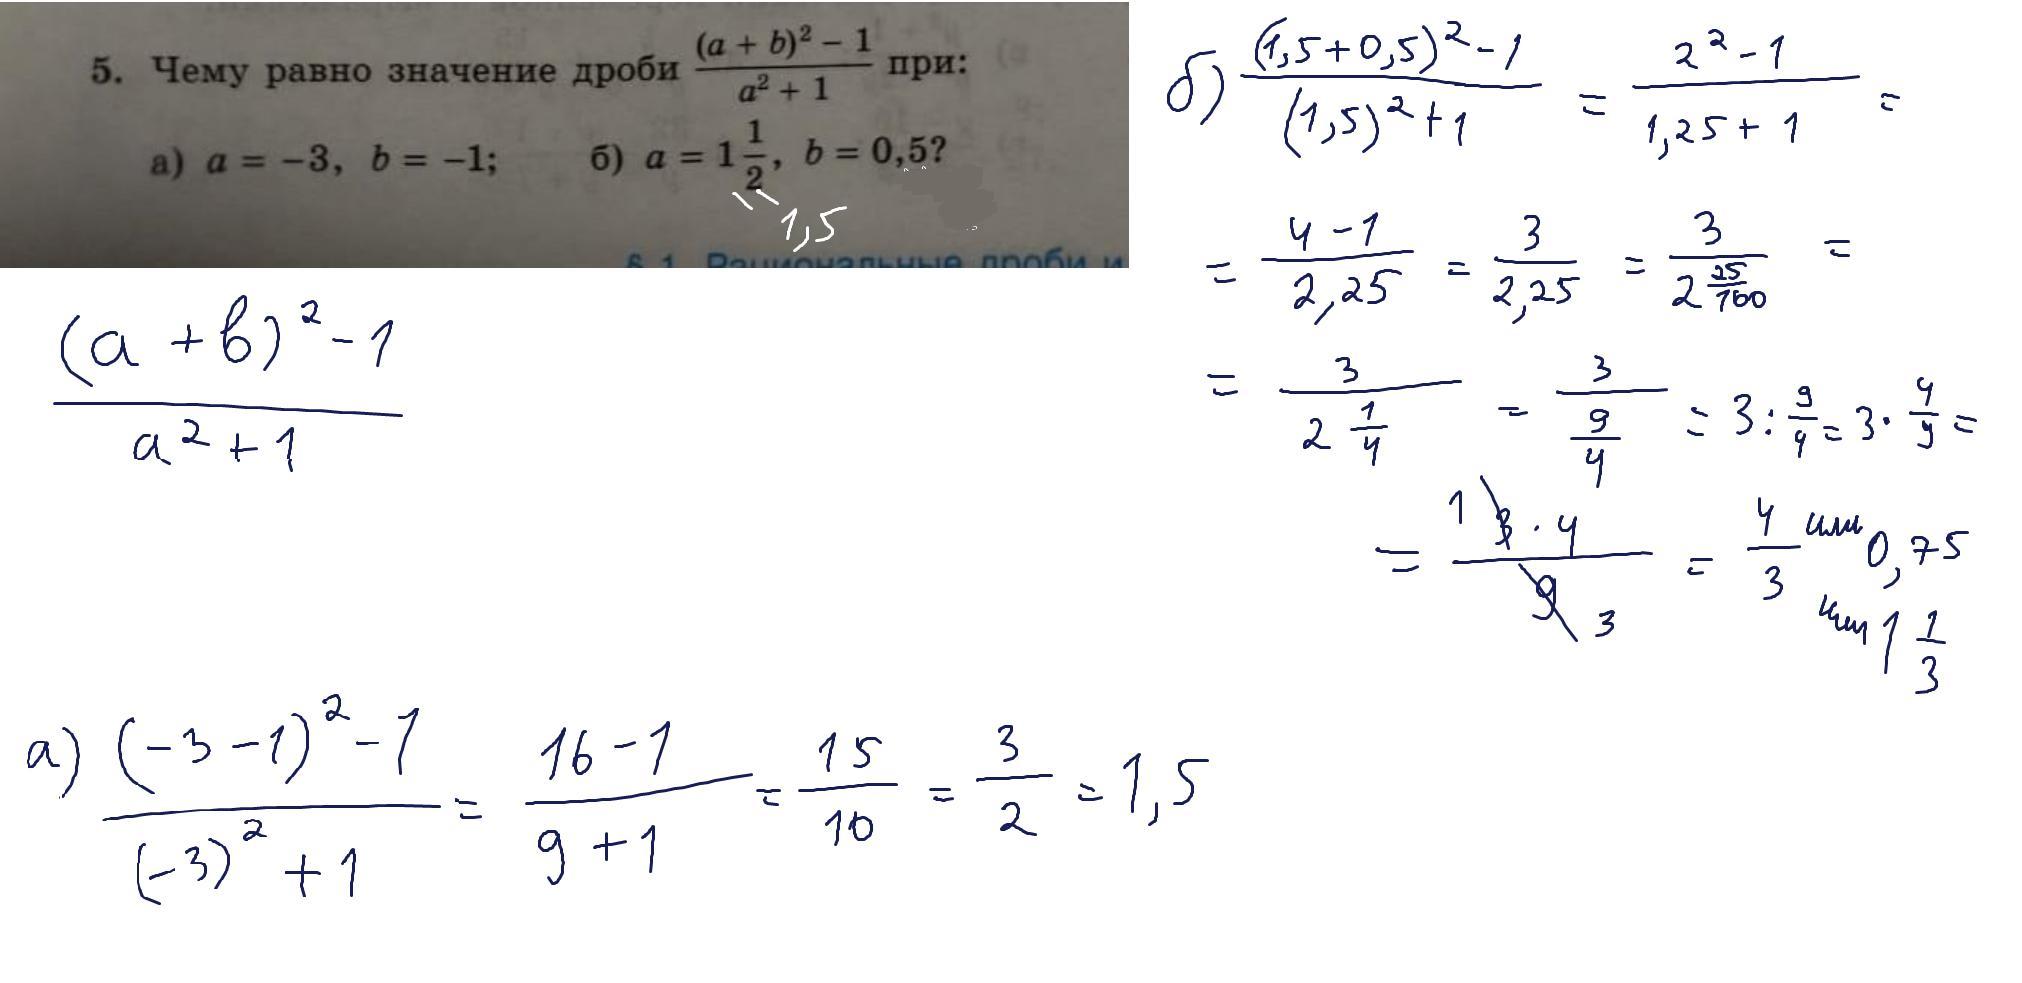 5. Чему равно значение дроби ((a + b)² − 1)/(a² + 1) при:
а) a = −3, b = −1; б) a = 1 1/2, b = 0,5?
1,5
§ 1. Рациональные дроби и
((a + b)² − 1)/(a² + 1)
а) ((−3 − 1)² − 1)/((−3)² + 1) = (16 − 1)/(9 + 1) = 15/10 = 3/2 = 1,5
б) ((1,5 + 0,5)² − 1)/((1,5)² + 1) = (2² − 1)/(1,25 + 1) =
= (4 − 1)/(2,25) = 3/(2,25) = 3/(2 25/100) =
= 3/(2 1/4) = 3/(9/4) = 3 : 9/4 = 3 · 4/9 =
= (1 3 · 4)/(9 3) = 4/3 или 0,75
или 1 1/3